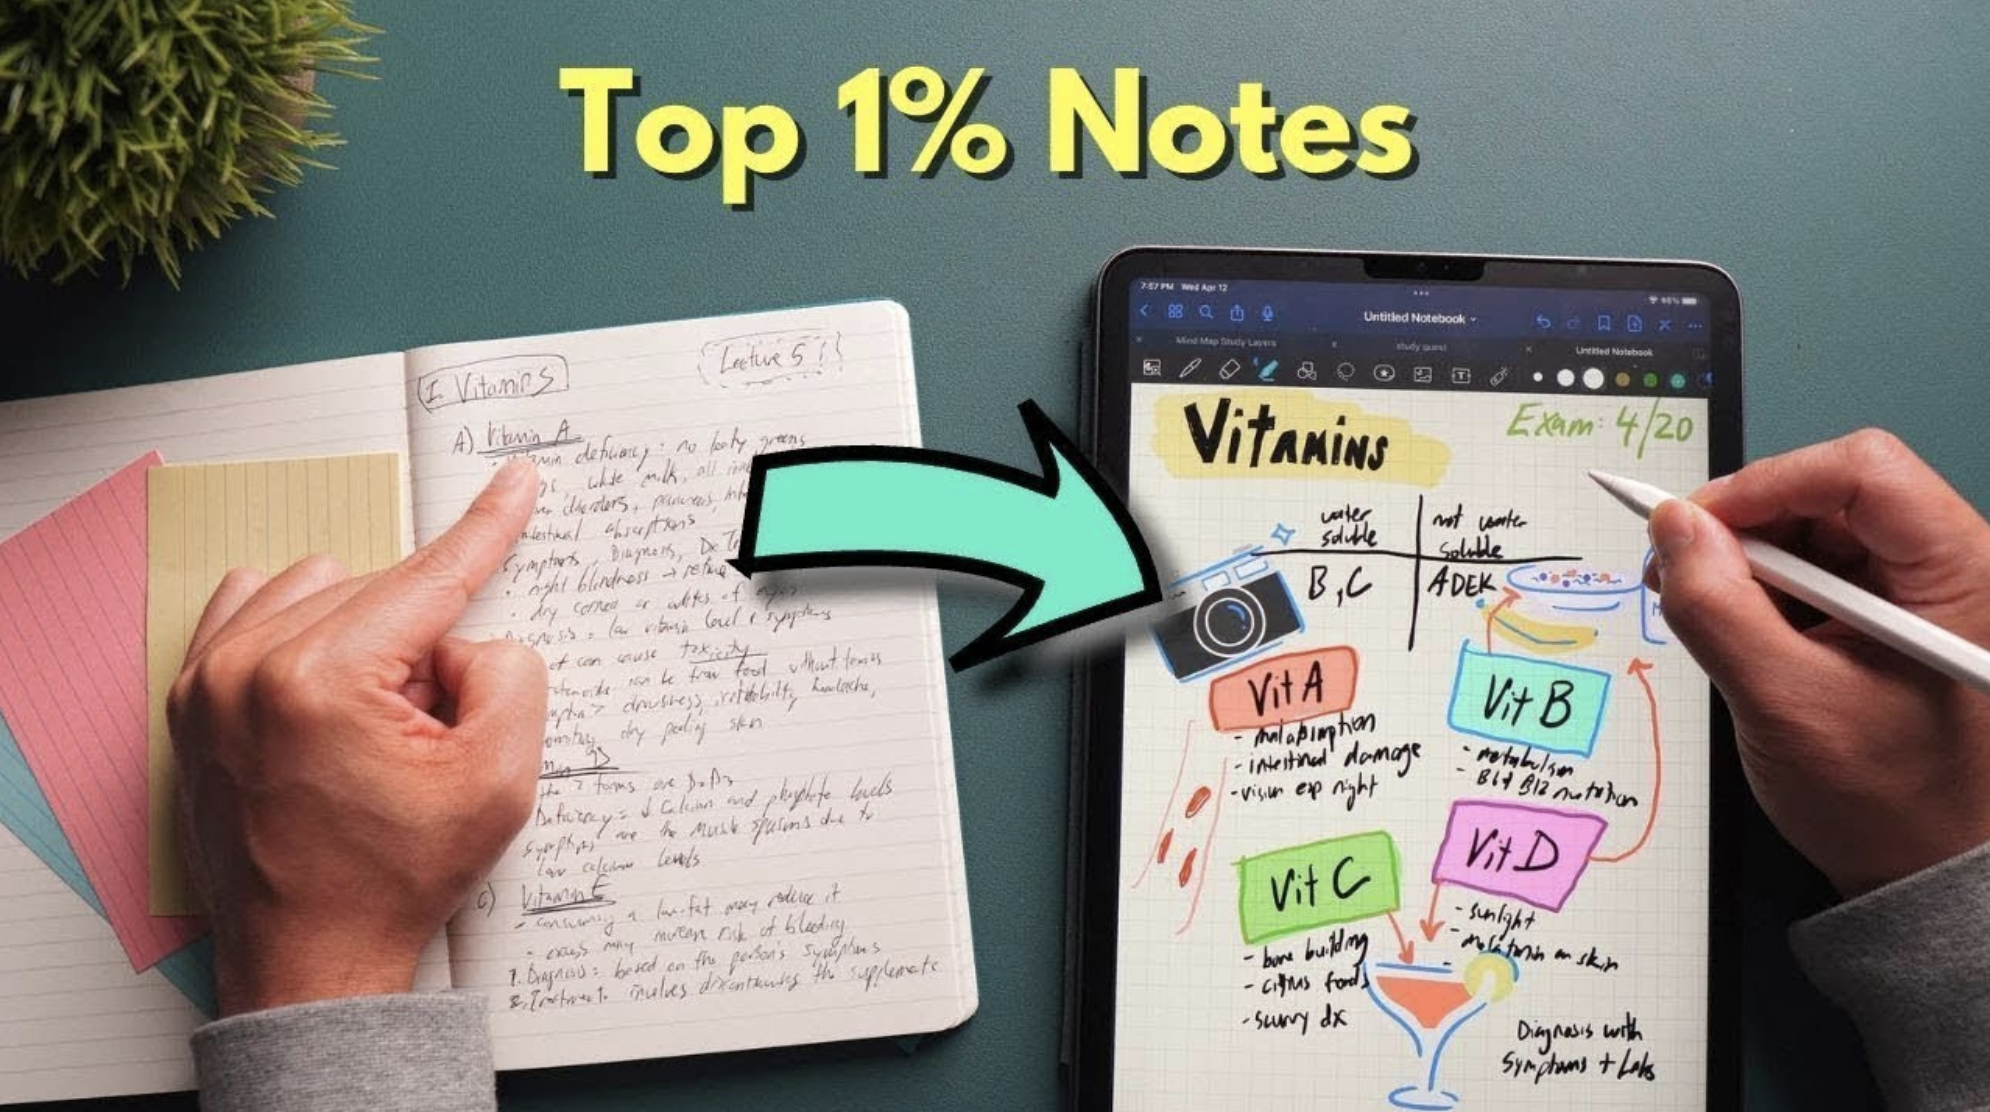 Top 1% Notes
I. Vitamins
Lecture 5!
A) Vitamin A
deficiency: no leafy greens
white milk, all
disorders, pancreas,
intestinal absorptions
Symptoms, Diagnosis, Dx
night blindness →
dry cornea or
low vitamin level + symptoms
can cause toxicity
can be from food without
drowsiness, irritability, headache,
dry peeling skin
D
the 2 forms are D2 D3
Deficiency = ↓ Calcium and phosphate levels
symptoms are the muscle spasms due to
low calcium levels
C) Vitamin E
- consuming a low-fat may reduce it
- excess may increase risk of bleeding
1. Diagnosis: based on the person's symptoms
2. Treatment: involves discontinuing the supplements
7:57 PM Wed Apr 12
Untitled Notebook
Mind Map Study Layers
study quest
Untitled Notebook
Vitamins
Exam: 4/20
water
soluble
not water
soluble
B, C
ADEK
Vit A
- malabsorption
- intestinal damage
- vision esp night
Vit B
- metabolism
- B6 & B12 nutrition
Vit C
- bone building
- citrus foods
- scurvy dx
Vit D
- sunlight
- on skin
-
Diagnosis with
Symptoms + Labs